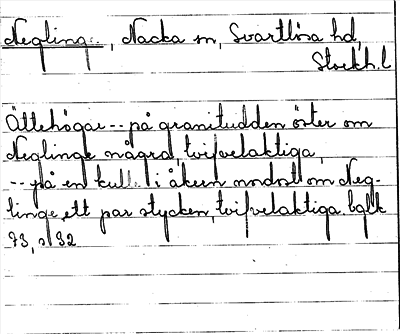 Neglinge, Nacka sn, Svartlösa hd,
Stockh. l
Ättehögar -- på granitudden öster om
Neglinge några, tvifvelaktiga,
-- på en kulle i åkern nordost om Neg-
linge ett par stycken, tvifvelaktiga.
73, s 32